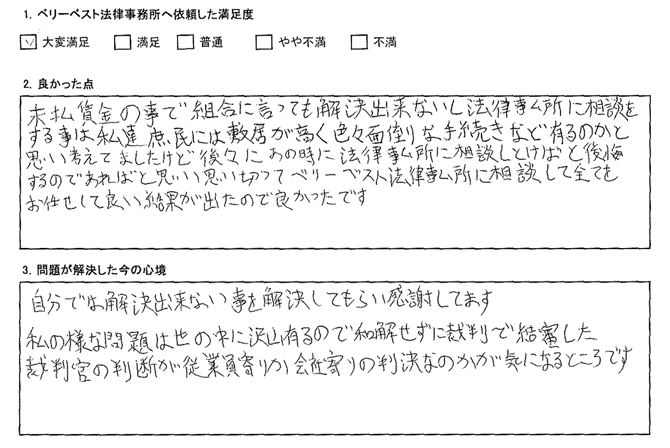 1. ベリーベスト法律事務所へ依頼した満足度
☑ 大変満足 □ 満足 □ 普通 □ やや不満 □ 不満
2. 良かった点
未払賃金の事で組合に言っても解決出来ないし法律事ム所に相談を
する事は私達庶民には敷居が高く色々面倒な手続きなど有るのかと
思い考えてましたけど後々にあの時に法律事ム所に相談しとけばと後悔
するのであればと思い思い切ってベリーベスト法律事ム所に相談して全てを
お任せして良い結果が出たので良かったです
3. 問題が解決した今の心境
自分では解決出来ない事を解決してもらい感謝してます
私の様な問題は世の中に沢山有るので和解せずに裁判で結審した
裁判官の判断が従業員寄りか会社寄りの判決なのかが気になるところです